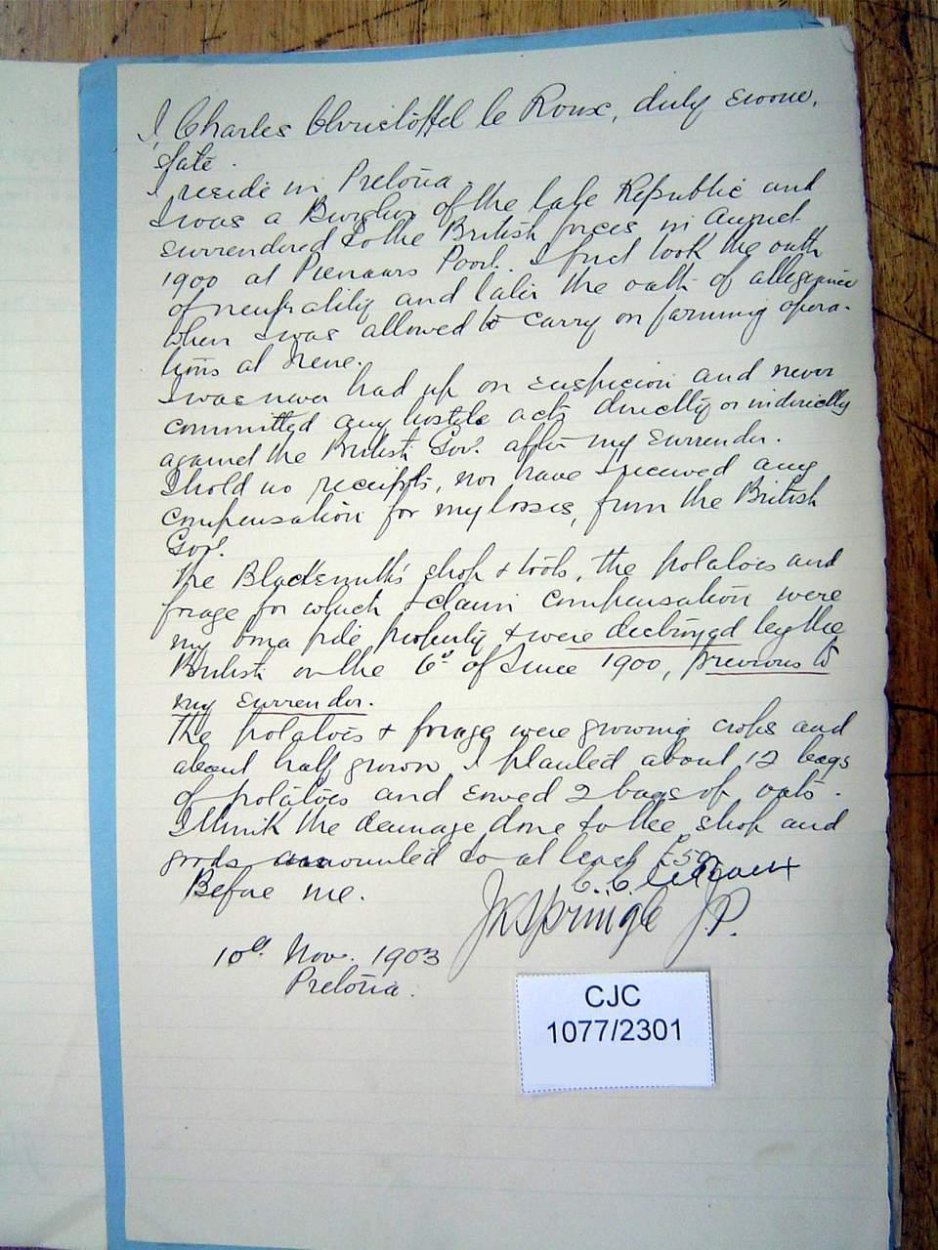 I, Charles Christoffel le Roux, duly sworn,
state.
I reside in Pretoria.
I was a Burgher of the late Republic and
surrendered to the British forces in August
1900 at Pienaars Poort. I first took the oath
of neutrality and later the oath of allegiance
when I was allowed to carry on farming opera-
tions at Irene.
I was never had up on suspicion and never
committed any hostile acts directly or indirectly
against the British Govt. after my surrender.
I hold no receipts, nor have I received any
compensation for my losses, from the British
Govt.
The Blacksmith's shop & tools, the potatoes and
forage for which I claim compensation were
my bona fide property & were destroyed by the
British on the 6th of June 1900, previous to
my surrender.
The potatoes & forage were growing crops and
about half grown I planted about 12 bags
of potatoes and sowed 2 bags of oats.
I think the damage done to the shop and
goods amounted to at least £50
C. C. le Roux
Before me.
J.P.
10th Nov. 1903
Pretoria.
CJC
1077/2301